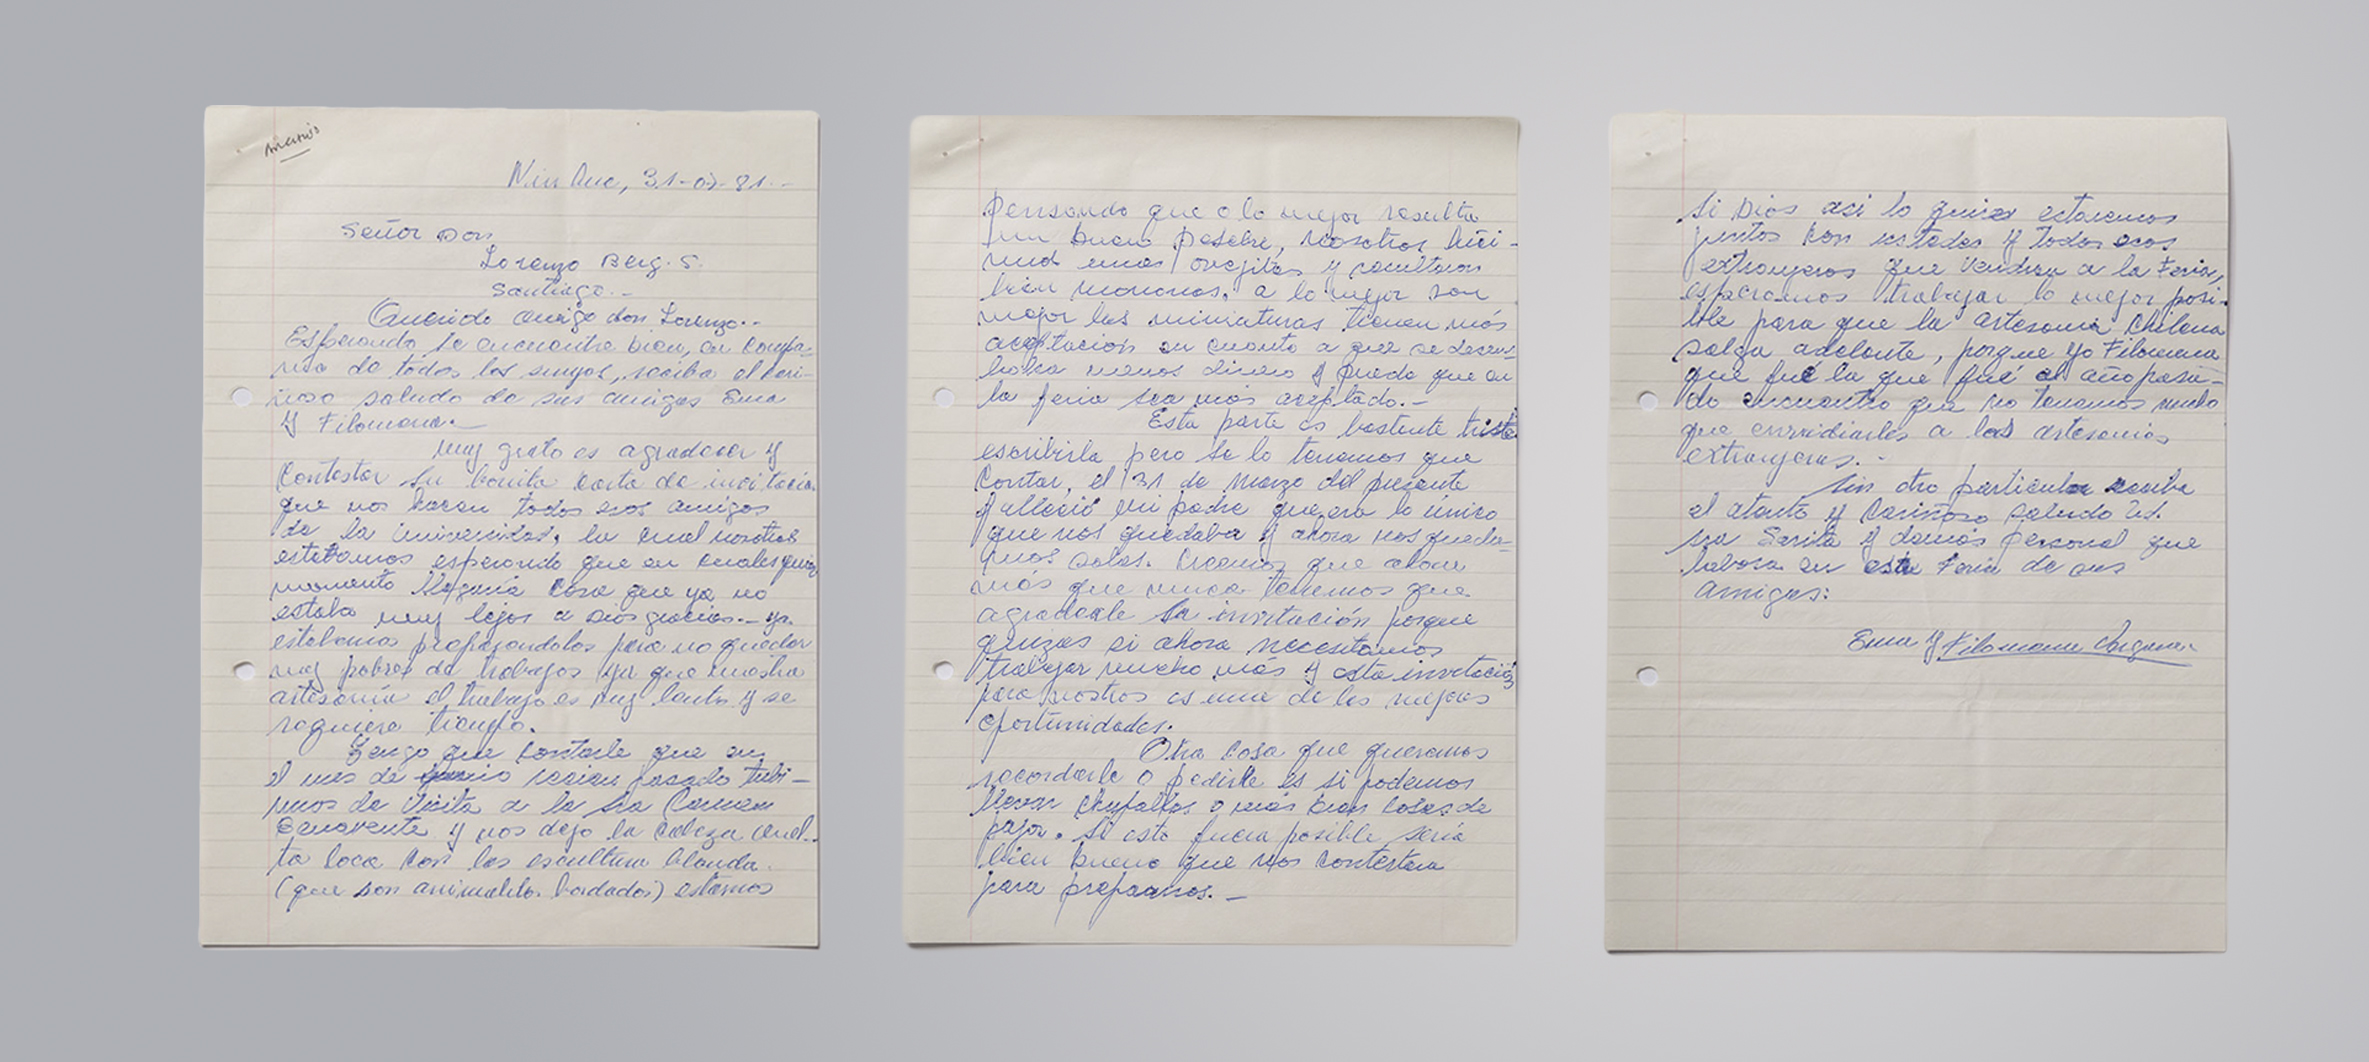 Ninhue, 31-07-81.-
Señor Don
Lorenzo Berg. S.
Santiago.-
Querido amigo don Lorenzo.-
Esperando se encuentre bien, en compa-
nia de todos los suyos, reciba el cari-
ñoso saludo de sus amigas Ema
y Filomena.-
Muy grato es agradecer y
contestar su bonita carta de invitación
que nos hacen todos esos amigos
de la universidad, la cual nosotras
estabamos esperando que en cualesquier
momento llegaria cosa que ya no
estaba muy lejos a Dios gracias.- ya
estabamos preparandolas para no quedar
muy pobres de trabajos ya que nuestra
artesania el trabajo es muy lento y se
requiere tiempo.
Tengo que contarle que en
el mes de recien pasado tubi-
mos de visita a la Sra Carmen
Benavente y nos dejo la cabeza vuel-
ta loca con las escultura blanda.
(que son animalito bordados) estamos
pensando que a lo mejor resulta
un bueno pesebre, nosotras hici-
mos unas ovejitas y resultaron
bien monono, a lo mejor son
mejor las miniaturas tienen más
aceptacion en cuanto a que se desem-
bolsa menos dinero y puede que en
la feria sea más aceptado.-
Esta parte es bastante triste
escribirla pero se lo tenemos que
contar, el 31 de Marzo del presente
falleció mi padre que era lo único
que nos quedaba y ahora nos queda-
mos solas. Creemos que ahora
más que nunca tenemos que
agradecerle la invitación porque
quizas si ahora necesitamos
trabajar mucho más y esta invitación
para nostros es una de las mejores
oportunidades.
Otra cosa que queremos
recordarle o pedirle es si podemos
llevar chupallas o más bien cosas de
paja. Si esto fuera posible seria
bien bueno que nos contestara
para prepararnos.-
Si Dios asi lo quiere estaremos
juntos con ustedes y todos esos
extranjeros que vendran a la Feria,
esperamos trabajar lo mejor posi-
ble para que la artesania chilena
salga adelante, porque yo Filomena
que fué la qué fué el año pasa-
do encuentro que no tenemos nada
que envidiarles a las artesanias
extranjeras.-
Sin otro particular reciba
el atento y cariñoso saludo Ud.
sra Sarita y demás personal que
labora en esta Feria de sus
amigas:
Ema y Filomena Vergara.